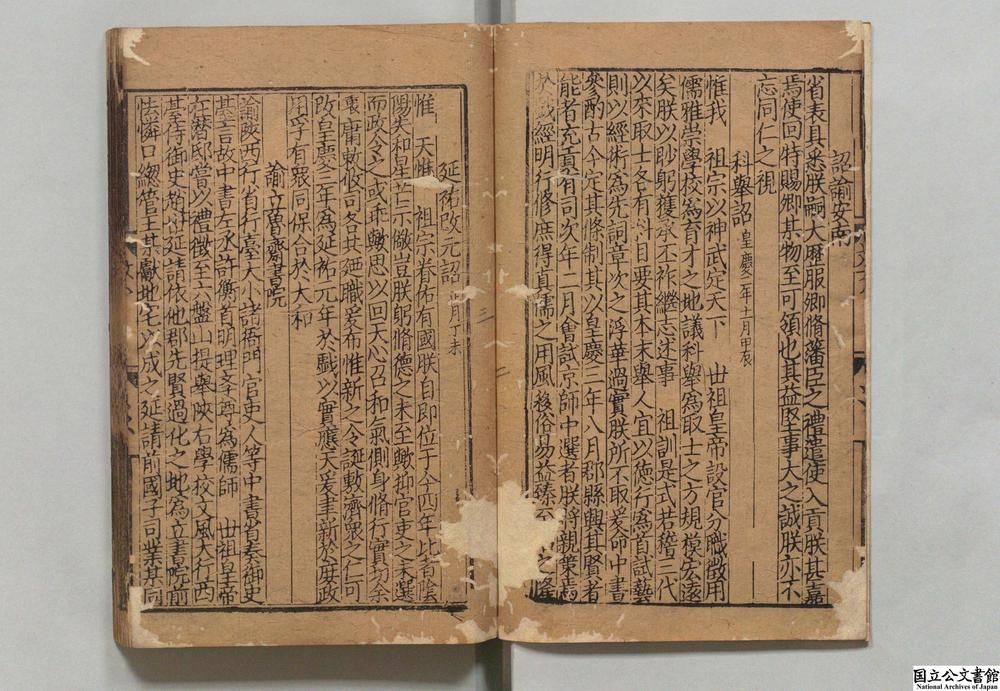 詔諭安南
省表具悉朕嗣大歷服卿脩藩臣之禮遣使入貢朕甚嘉
焉使回特賜卿某物至可領也其益堅事大之誠朕亦不
忘同仁之視
科舉詔 皇慶二年十一月甲辰
惟我 祖宗以神武定天下 世祖皇帝設官分職徵用
儒雅崇學校爲育才之地議科舉爲取士之方規模宏遠
矣朕以眇躬獲承丕祚繼志述事 祖訓是式若稽三代
以來取士各有科目要其本末舉人宜以德行爲首試藝
則以經術爲先詞章次之浮華過實朕所不取爰命中書
參酌古今定其條制其以皇慶三年八月郡縣興其賢者
能者充貢有司次年二月會試京師中選者朕將親策焉
於戲經明行修庶得眞儒之用風移俗易益臻至 之隆
延祐改元詔 正月丁未
惟 天惟 祖宗眷佑有國朕自即位于今四年比者陰
陽失和星芒示儆豈朕躬脩德之未至歟抑官吏之未選
而政令之或乖歟思以回天心召和氣側身脩行實切余
衷庸敕攸司各共廼職爰布惟新之令誕敷濟衆之仁可
改皇慶三年爲延祐元年於戲以實應天爰書新於庶政
用孚有衆同保合於大和
諭立魯齋書院
諭陝西行省行臺大小諸衙門官吏人等中書省奏御史
臺言故中書左丞許衡首明理學尊爲儒師 世祖皇帝
在潛邸嘗以禮徵至六盤山提舉陝右學校文風大行西
臺侍御史 延請依他郡先賢過化之地爲立書院前
怯憐口緫管王某獻地宅以成之延請前國子司業某同
國立公文書館
National Archives of Japan